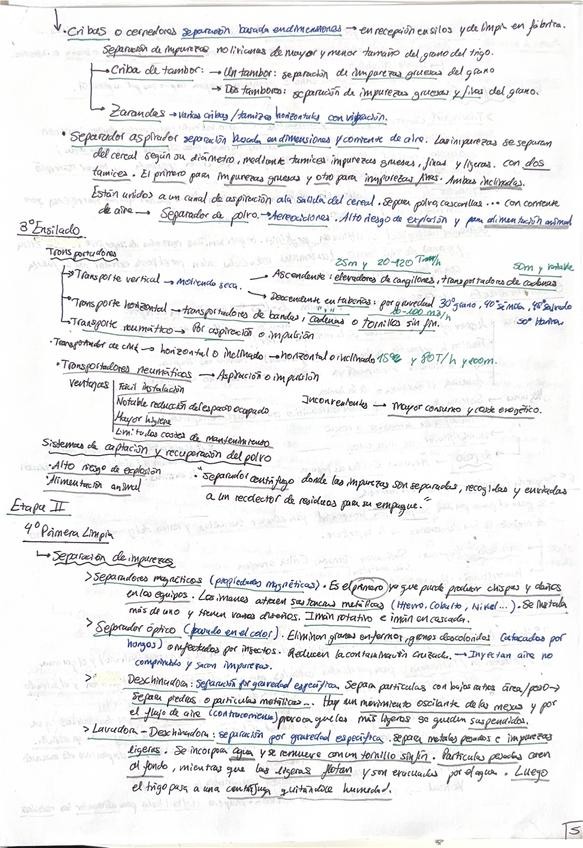 · Cribas o cernedores separación basada en dimensiones → en recepción en silos y de limpia en fábrica.
Separación de impurezas no livianas de mayor y menor tamaño del grano del trigo.
→ Criba de tambor: → Un tambor: separación de impurezas gruesas del grano
→ Dos tambores: separación de impurezas gruesas y finas del grano.
→ Zarandas → varias cribas/tamices horizontales con vibración.
· Separador aspirador separación basada en dimensiones y corriente de aire. Las impurezas se separan
del cereal según su diámetro, mediante tamices impurezas gruesas, finas y ligeras. con dos
tamices. El primero para impurezas gruesas y otro para impurezas finas. Ambas inclinadas.
Están unidos a un canal de aspiración a la salida del cereal. Separa polvo, cascarillas ... con corriente
de aire → Separador de polvo. → Alto riesgo de explosión y para alimentación animal
3º Ensilado
Transportadores
25m y 20-120 Tm/h
50m y variable
→ Transporte vertical → Molienda seca. → Ascendente: elevadores de cangilones, transportadores de cadenas
→ Descendente en tuberías: por gravedad 30º grano, 40º Sémola, 45º Salvado
50º Harina
→ Transporte horizontal → transportadores de bandas, cadenas o tornillos sin fin.
→ Transporte neumático → Por aspiración o impulsión
· Transportador de → horizontal o inclinado → horizontal o inclinado 15º y 80T/h y 100m.
· Transportadores neumáticos → Aspiración o impulsión
Ventajas
Fácil instalación
Notable reducción del espacio ocupado
Mayor higiene
Limitados costes de mantenimiento
Inconvenientes → Mayor consumo y coste energético.
Sistemas de captación y recuperación del polvo
· Alto riesgo de explosión
· Alimentación animal
· "Separador centrífugo donde las impurezas son separadas, recogidas y enviadas
a un recolector de residuos para su empaque."
Etapa II
4º Primera Limpia
→ Separación de impurezas
> Separadores magnéticos (propiedades magnéticas). Es el primero ya que puede producir chispas y daños
en los equipos. Los imanes atraen sustancias metálicas (Hierro, Cobalto, Níkel...). Se instala
más de uno y tienen varios diseños. Imán rotativo e imán en cascada.
> Separador óptico (basado en el color). Eliminan granos enfermos, granos descoloridos (atacados por
hongos) o infectados por insectos. Reducen la contaminación cruzada. → Inyectan aire no
comprimido y sacan impurezas.
> Deschinadora: Separación por gravedad específica. Separa partículas con bajos ratios área/peso →
Separa piedras o partículas metálicas... Hay un movimiento oscilante de las mesas y por
el flujo de aire (contracorriente) provoca que las más ligeras se queden suspendidas.
> Lavadora - Deschinadora: separación por gravedad específica. Separa metales pesados e impurezas
ligeras. Se incorpora agua y se remueve con un tornillo sinfín. Partículas pesadas caen
al fondo, mientras que las ligeras flotan y son evacuadas por el agua. Luego
el trigo pasa a una centrífuga quitándole humedad.
5